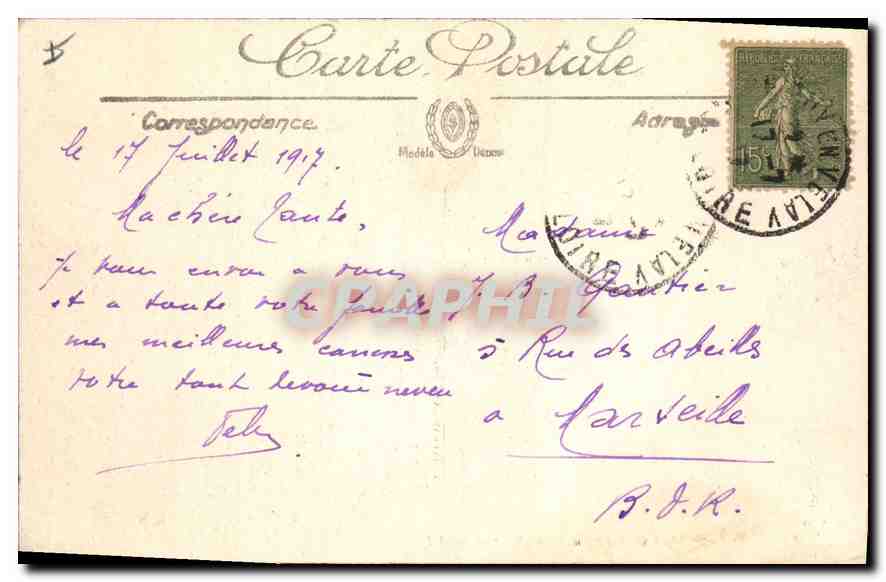 Carte Postale
Correspondance
Modèle Déposé
le 17 Juillet 1917.
Ma chère tante,
Je vous envoi a vous
et a toute votre famille
mes meilleures caresses
votre tout dévoué neveu
Adresse
Madame
J. B. Gautier
5 Rue des Abeilles
a Marseille
B. d. R.
REPUBLIQUE FRANÇAISE
15c
EN VELAY
LOIRE
VELAY
LOIRE
CPAPHIL